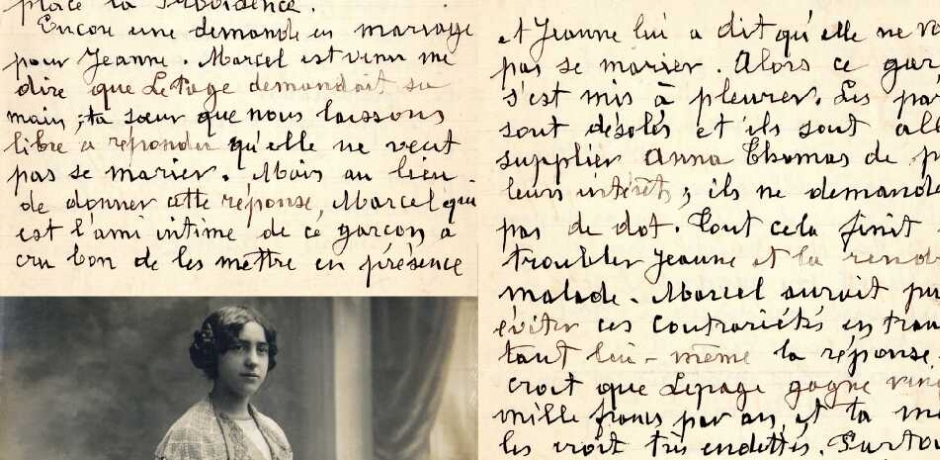 place la Providence.
Encore une demande en mariage
pour Jeanne. Marcel est venu me
dire que LePage demandait sa
main ; ta sœur que nous laissons
libre a répondu qu'elle ne veut
pas se marier. Mais au lieu
de donner cette réponse, Marcel qui
est l'ami intime de ce garçon a
cru bon de les mettre en présence
et Jeanne lui a dit qu'elle ne
pas se marier. Alors ce
s'est mis à pleurer. Les
sont désolés et ils sont
supplier Anna Thomas de
leurs intérêts ; ils ne
pas de dot. Tout cela finit
troubler Jeanne et la
malade. Marcel aurait
éviter ces contrariétés en
tant lui-même la réponse.
croit que Lepage gagne
mille francs par an, et ta
les voit très endettés.